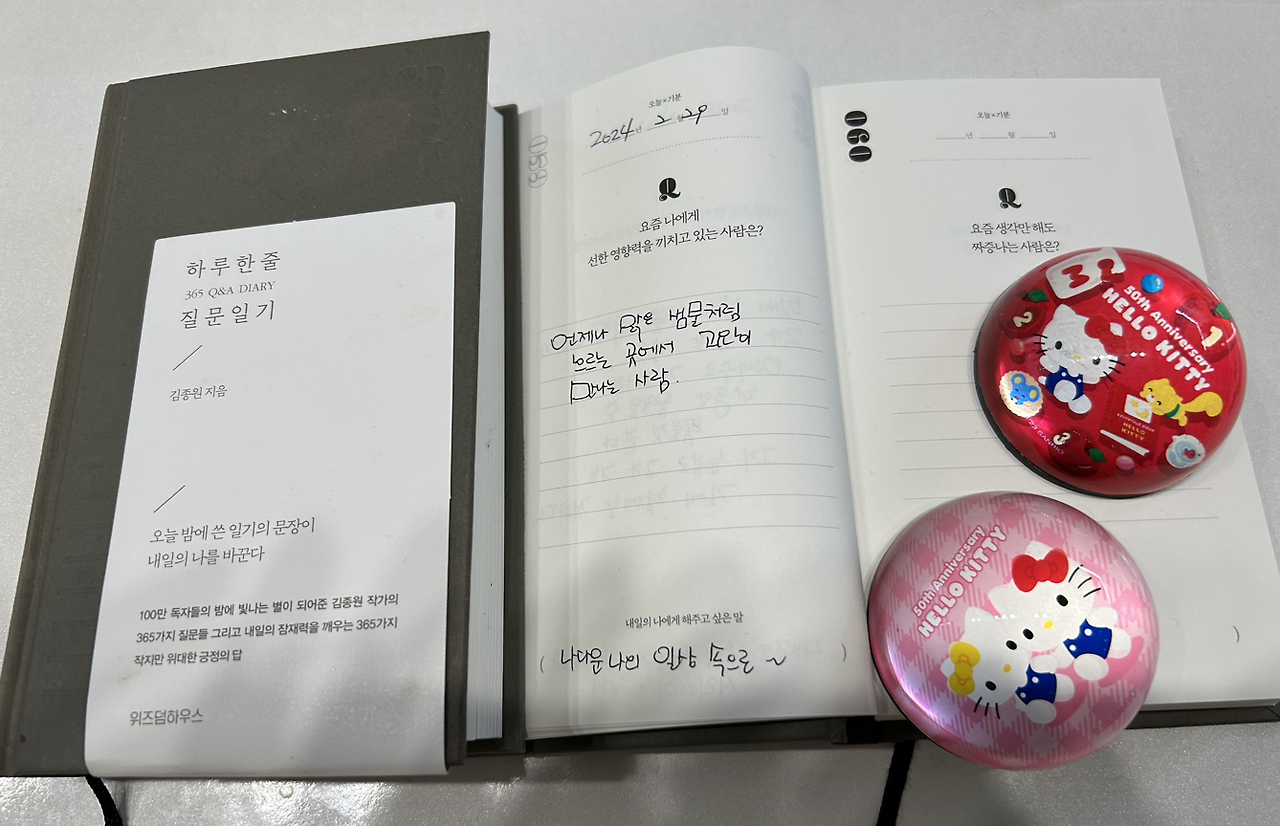 하루한줄
365 Q&A DIARY
질문일기
김종원 지음
오늘 밤에 쓴 일기의 문장이
내일의 나를 바꾼다
100만 독자들의 밤에 빛나는 별이 되어준 김종원 작가의
365가지 질문들 그리고 내일의 잠재력을 깨우는 365가지
작지만 위대한 긍정의 답
위즈덤하우스
069
오늘×기분
2024년 2월 29일
Q
요즘 나에게
선한 영향력을 끼치고 있는 사람은?
언제나 맑은 샘물처럼
흐르는 곳에서
만나는 사람.
내일의 나에게 해주고 싶은 말
( 나다운 나의 일상 속으로 ~ )
060
오늘×기분
년 월 일
Q
요즘 생각만 해도
짜증나는 사람은?
)
50th Anniversary
HELLO KITTY
1
2
3
HELLO
KITTY
50th Anniversary
HELLO KITTY